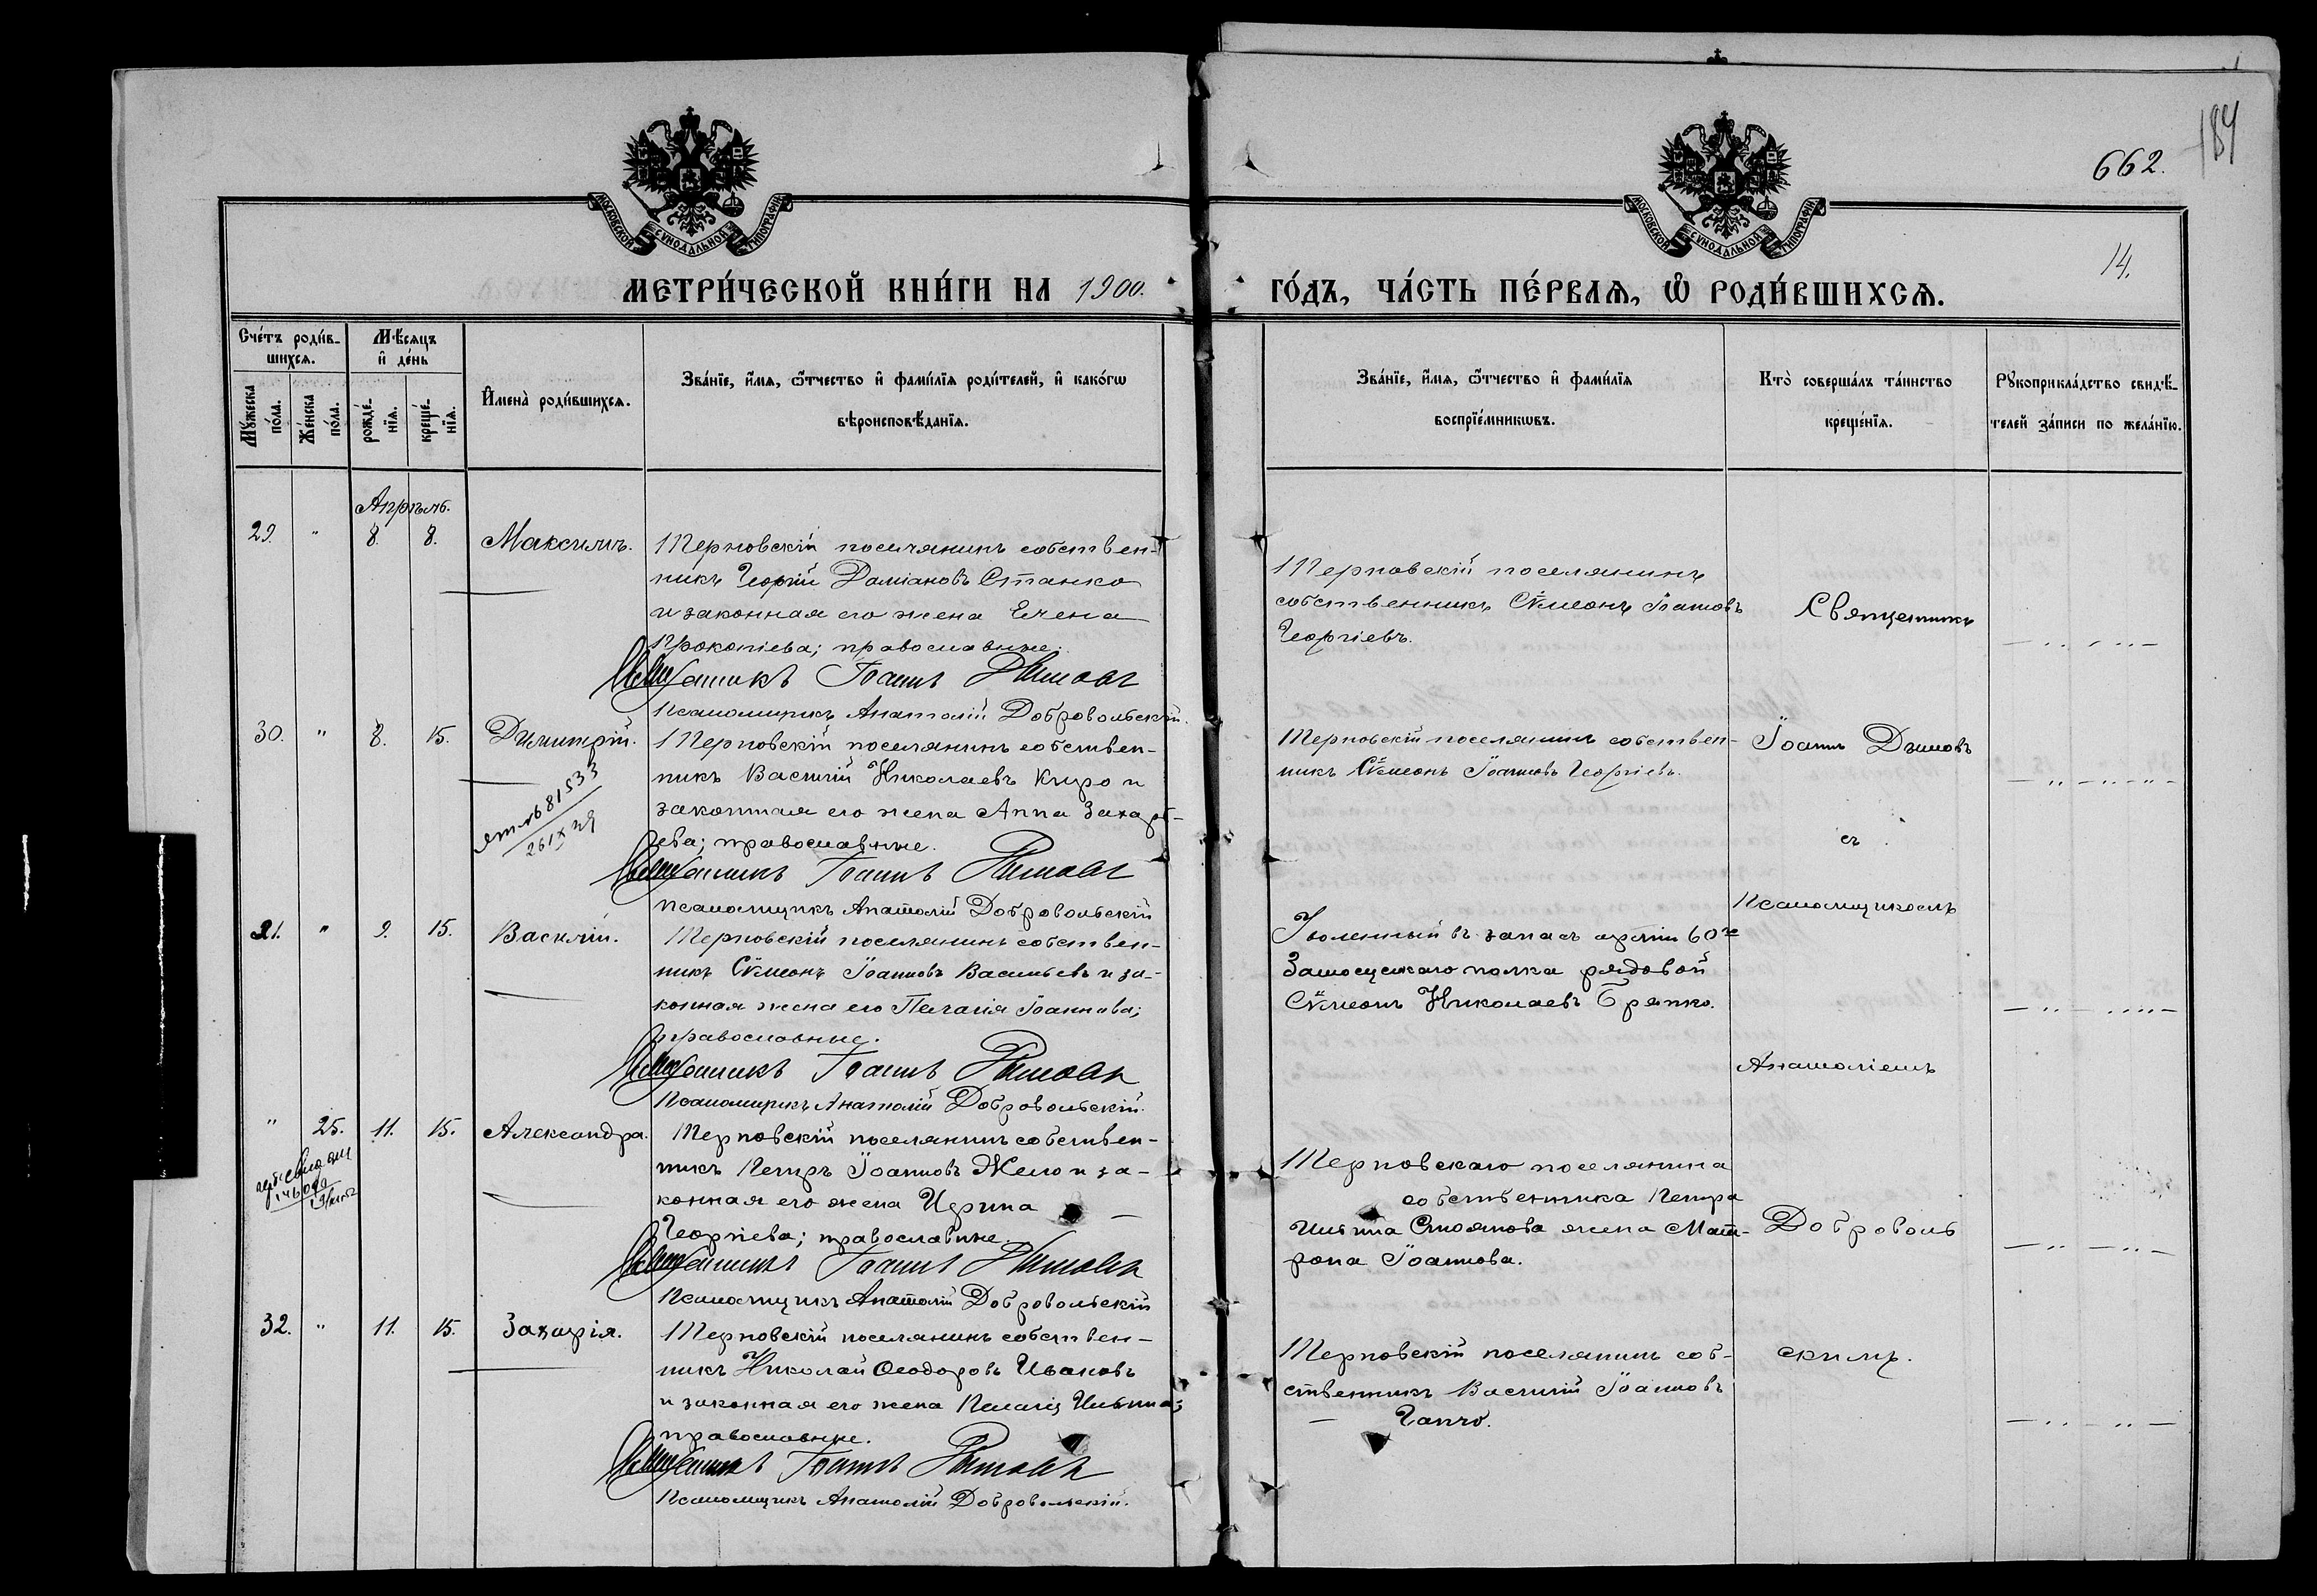 662.
184
МОСКОВСКОЙ СѴНОДАЛЬНОЙ ТИПОГРАФІИ
МОСКОВСКОЙ СѴНОДАЛЬНОЙ ТИПОГРАФІИ
14.
МЕТРИ́ЧЕСКОЙ КНИ́ГИ НА 1900. ГО́ДЪ, ЧА́СТЬ ПЕ́РВАѦ, Ѡ҆ РОДИ́ВШИХСѦ.
Сче́тъ роди́в-
шихсѧ.
Мꙋ́жеска по́ла.
Же́нска по́ла.
Мѣ́сѧцъ
и҆ де́нь
рожде́-нїѧ.
креще́-нїѧ.
И҆мена̀ роди́вшихсѧ.
Зва́нїе, и҆́мѧ, ѻ҆́тчество и҆ фами́лїѧ роди́телей, и҆ како́гѡ
вѣроисповѣ́данїѧ.
Зва́нїе, и҆́мѧ, ѻ҆́тчество и҆ фами́лїѧ
воспрїе́мникѡвъ.
Кто̀ соверша́лъ та́инство
креще́нїѧ.
Рꙋкоприкла́дство свидѣ́-
телей за́писи по жела́нїю.
Апрѣль.
29. " 8. 8. Максимъ.
Терновскій поселянинъ собствен-
никъ Георгій Даміановъ Станко
и законная его жена Елена
Прокопіева; православные.
Священникъ Іоаннъ Дымовъ
Псаломщикъ Анатолій Добровольскій.
Терновскій поселянинъ
собственникъ Сѵмеонъ Іоанновъ
Георгіевъ.
Священникъ
30. " 8. 15. Димитрій.
81533
Терновскій поселянинъ собствен-
никъ Василій Николаевъ Киро и
законная его жена Анна Захарь-
ева; православные.
Священникъ Іоаннъ Дымовъ
Псаломщикъ Анатолій Добровольскій
Терновскій поселянинъ собствен-
никъ Сѵмеонъ Іоанновъ Георгіевъ.
Іоаннъ Дымовъ
съ
Псаломщикомъ
31. " 9. 15. Василій.
Терновскій поселянинъ собствен-
никъ Сѵмеонъ Іоанновъ Васильевъ и за-
конная жена его Пелагія Іоаннова;
православные.
Священникъ Іоаннъ Дымовъ
Псаломщикъ Анатолій Добровольскій.
Уволенный въ запасъ арміи 60го
Замосцскаго полка рядовой
Сѵмеонъ Николаевъ Брянко.
Анатоліемъ
" 25. 11. 15. Александра.
Терновскій поселянинъ собствен-
никъ Петръ Іоанновъ Жело и за-
конная его жена Ирина
Георгіева; православные.
Священникъ Іоаннъ Дымовъ
Псаломщикъ Анатолій Добровольскій
Терновскаго поселянина
собственника Петра
Ильина Стоянова жена Мат-
рона Іоаннова.
Доброволь
32. " 11. 15. Захарія.
Терновскій поселянинъ собствен-
никъ Николай Ѳеодоровъ Ивановъ
и законная его жена Пелагія Ильина;
православные.
Священникъ Іоаннъ Дымовъ
Псаломщикъ Анатолій Добровольскій.
Терновскій поселянинъ соб-
ственникъ Василій Іоанновъ
Ганчо.
скимъ.